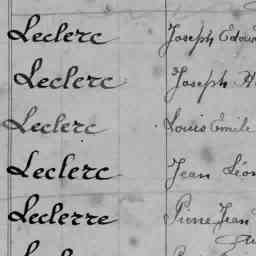 Leclerc Joseph
Leclerc Joseph
Leclerc Louis Emile
Leclerc Jean
Leclerre Pierre Jean